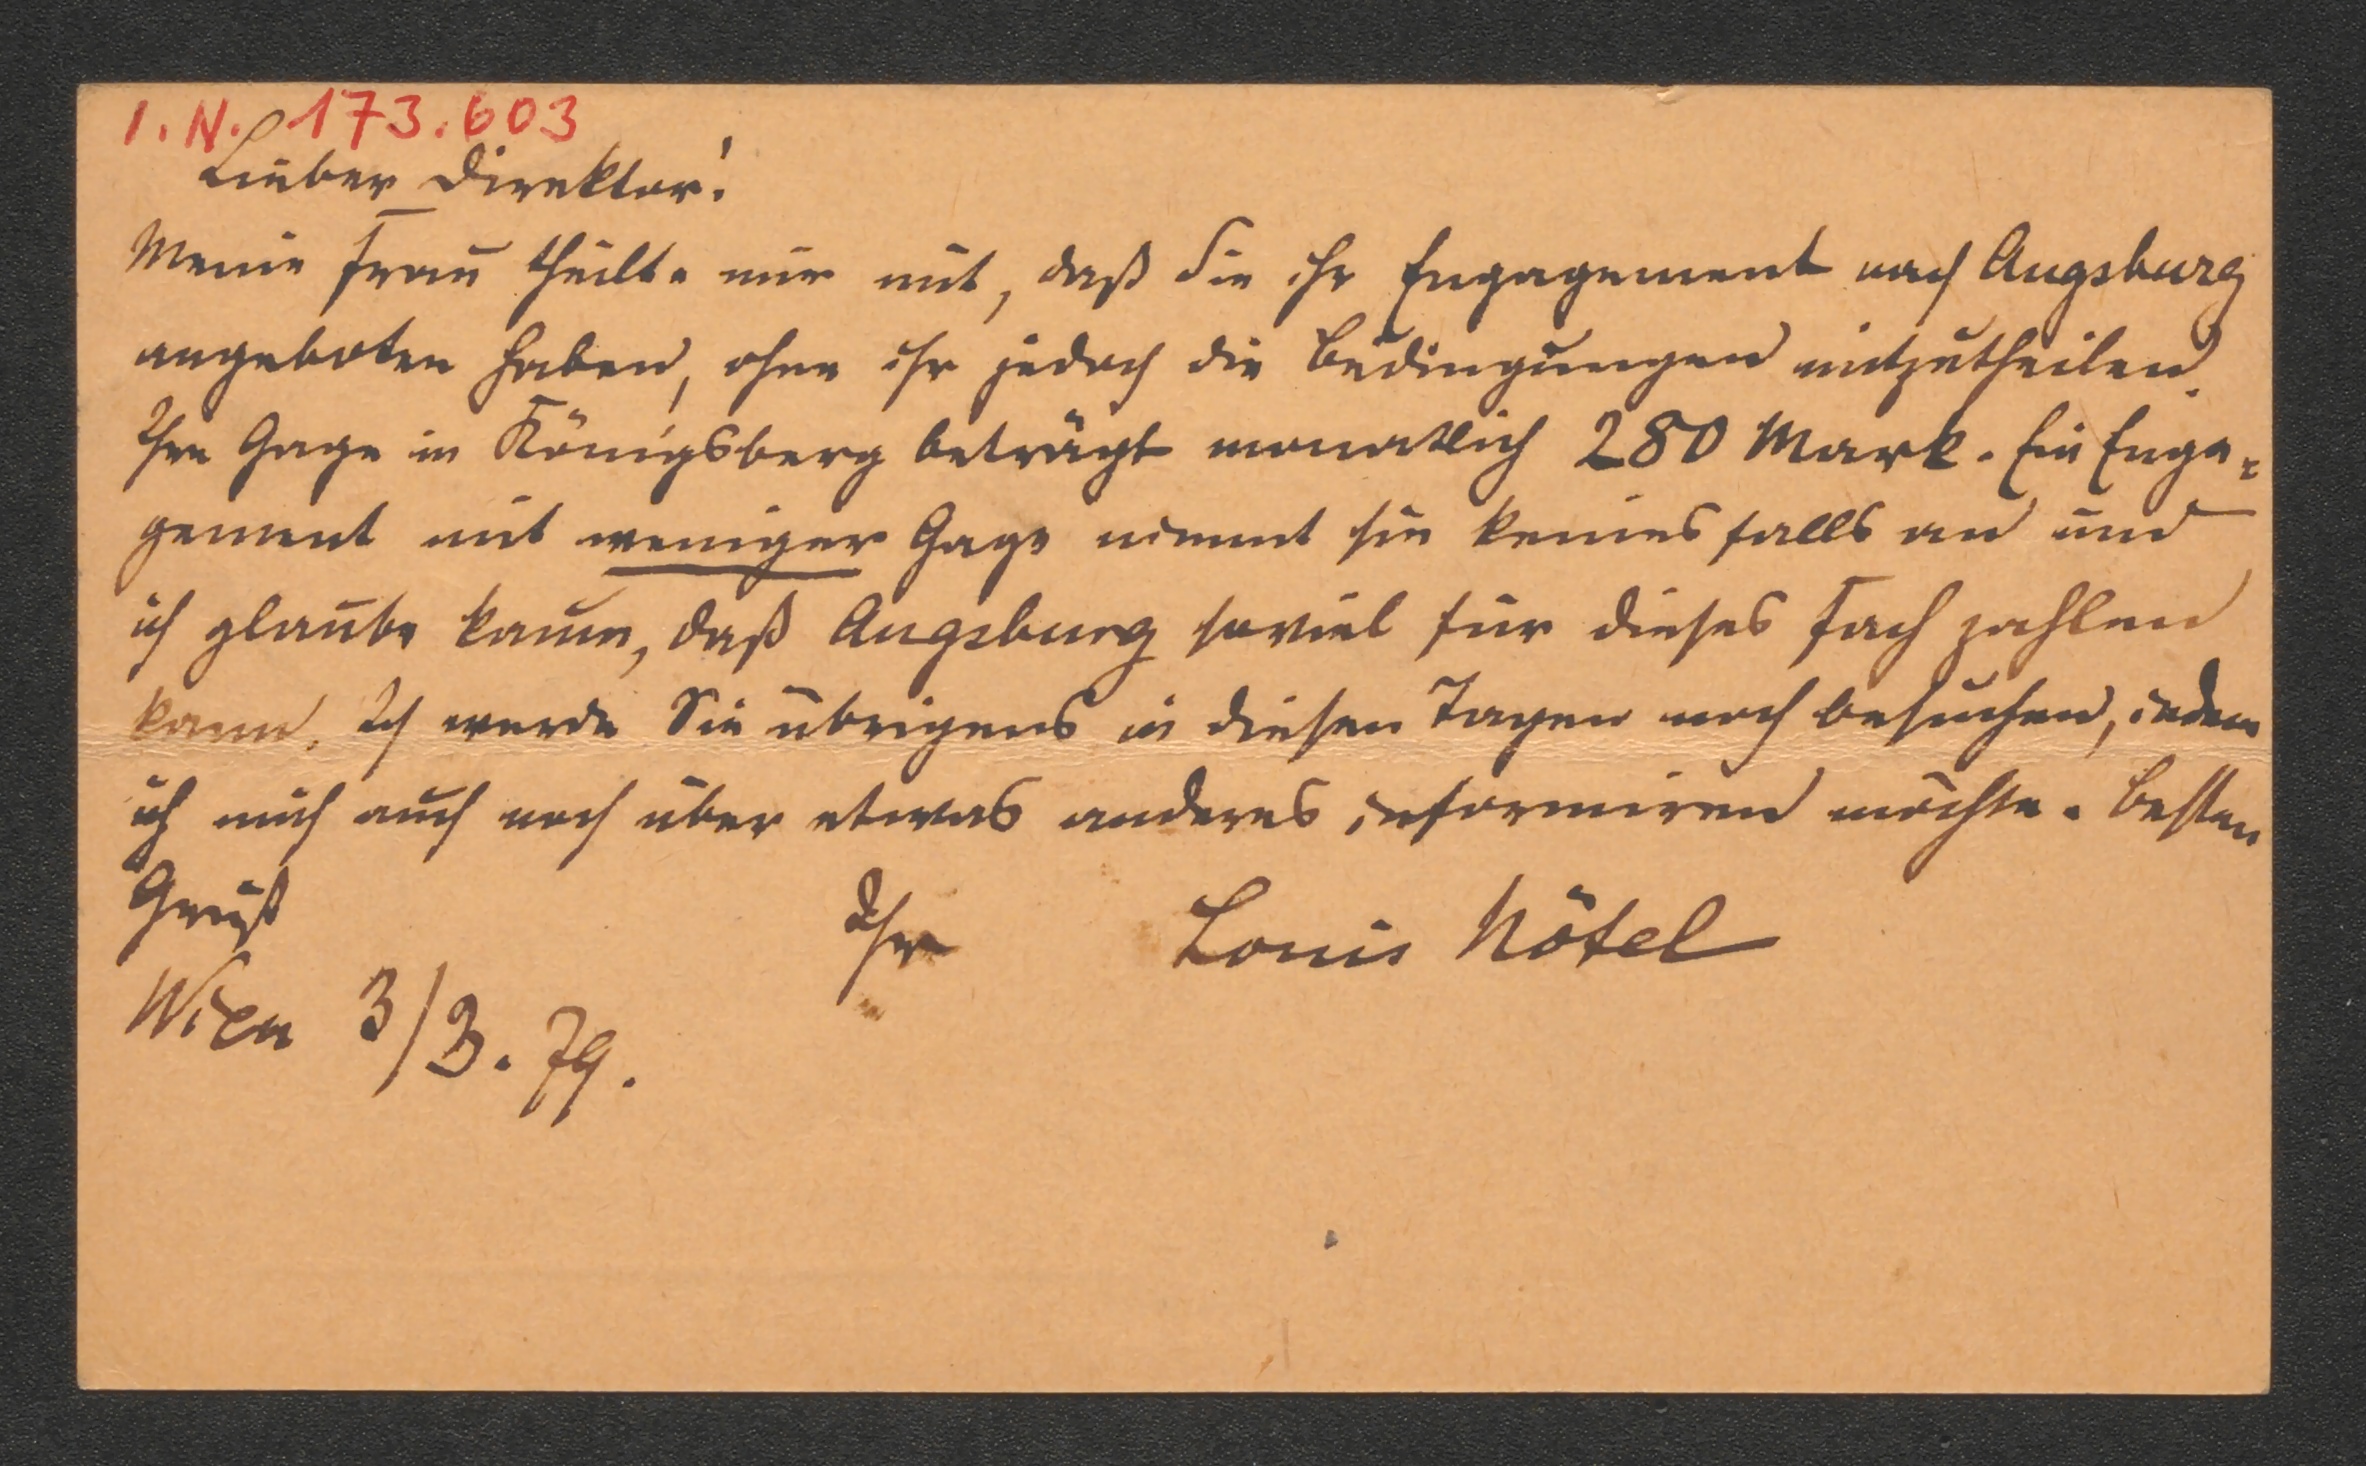 I. N. 173.603
Lieber Direktor!
Meine Frau theilte mir mit, daß Sie ihr Engagement nach Augsburg
angeboten haben, ohne ihr jedoch die Bedingungen mitzutheilen.
Ihre Gage in Königsberg beträgt monatlich 280 Mark. Ein Enga-
gement mit weniger Gage nimmt sie keinesfalls an und
ich glaube kaum, daß Augsburg soviel für dieses Fach zahlen
kann. Ich werde Sie übrigens in diesen Tagen noch besuchen, indem
ich mich auch noch über etwas anderes informiren möchte. Besten
Gruß Ihr Louis Nötel
Wien 3/3. 79.